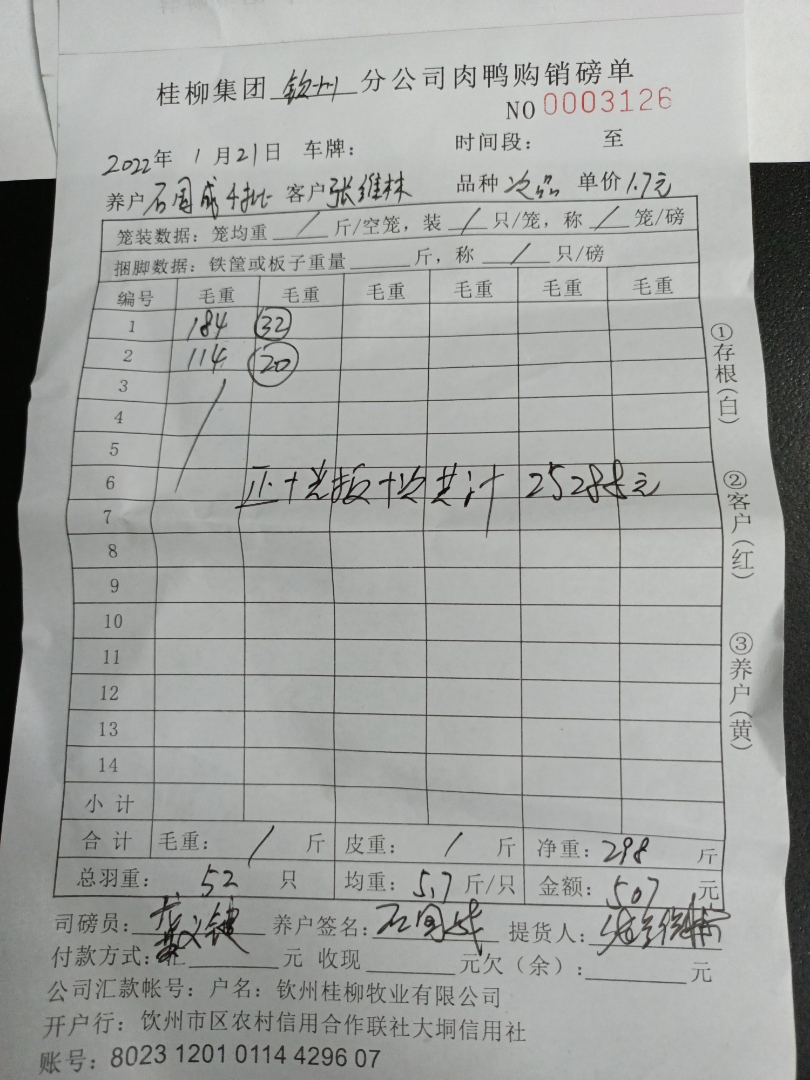 桂柳集团 钦州 分公司肉鸭购销磅单
NO 0003126
2022年 1月21日 车牌: 时间段: 至
养户 石国成 客户 张维林 品种 次品 单价 1.7元
笼装数据: 笼均重 / 斤/空笼, 装 / 只/笼, 称 / 笼/磅
捆脚数据: 铁筐或板子重量 斤, 称 / 只/磅
编号 毛重 毛重 毛重 毛重 毛重 毛重
1 184 32
2 114 20
3
4
5
6 正+光板+次共计 25288元
7
8
9
10
11
12
13
14
小计
合计 毛重: / 斤 皮重: / 斤 净重: 298 斤
总羽重: 52 只 均重: 5.7 斤/只 金额: 507 元
司磅员: 养户签名: 石国成 提货人:
付款方式: 汇 元 收现 元欠(余): 元
公司汇款帐号: 户名: 钦州桂柳牧业有限公司
开户行: 钦州市区农村信用合作联社大垌信用社
账号: 8023 1201 0114 4296 07
①存根(白)
②客户(红)
③养户(黄)